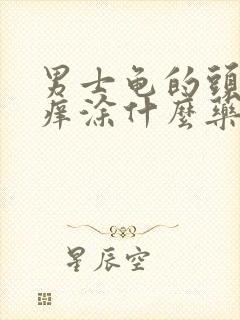 男士龟的頭
痒涂什麼藥
星辰空